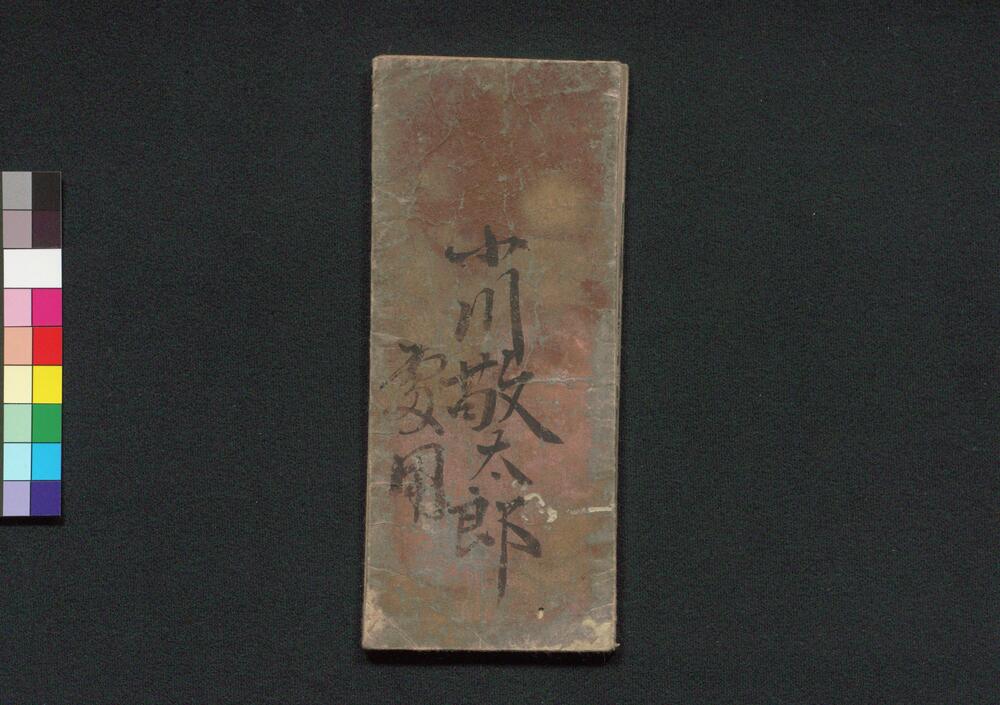 小川敬太郎
愛用